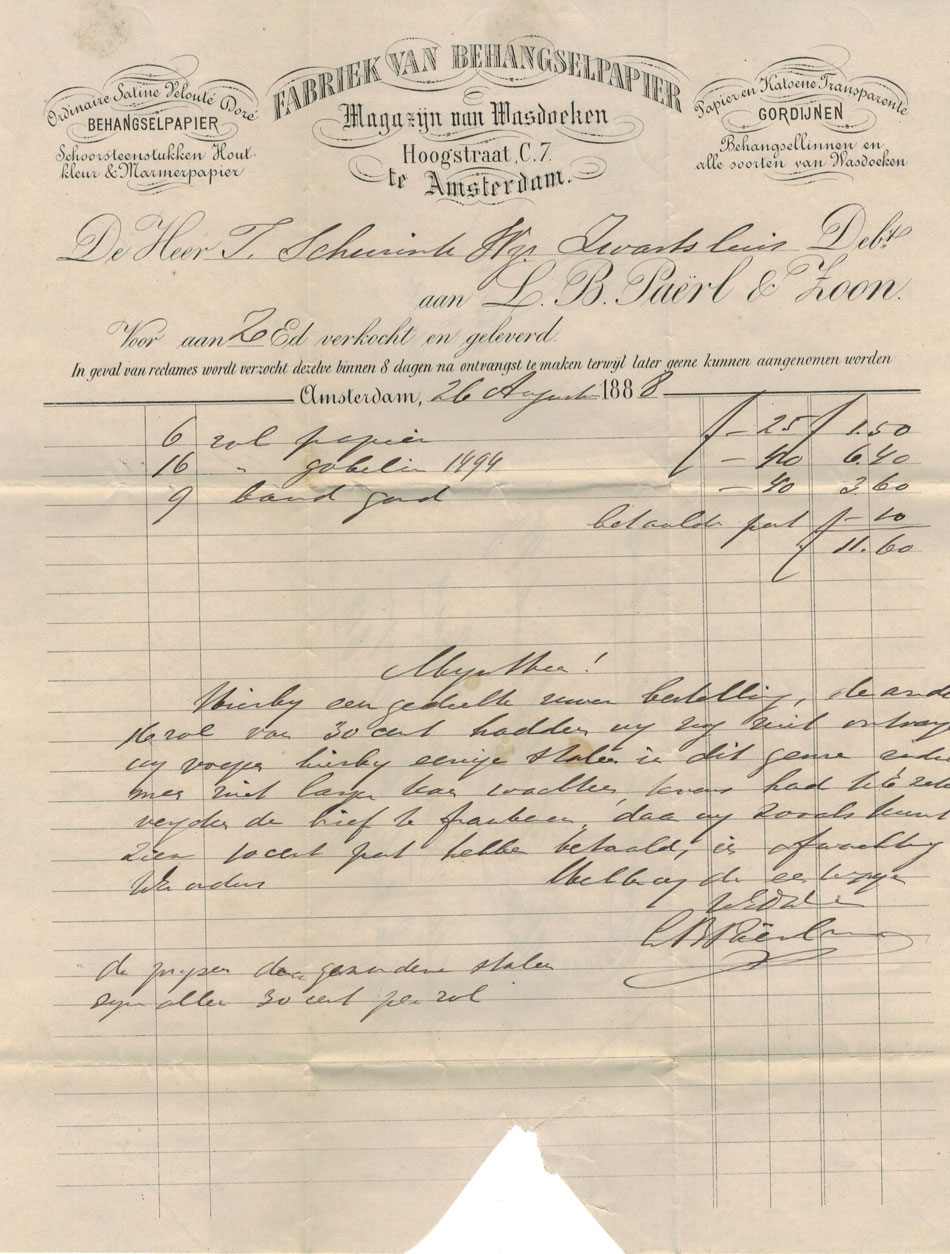 Ordinaire Satine Velouté Doré
BEHANGSELPAPIER
Schoorsteenstukken Hout-
kleur & Marmerpapier
FABRIEK VAN BEHANGSELPAPIER
Magazijn van Wasdoeken
Hoogstraat, C. 7.
te Amsterdam.
Papier en Katoene Transparente
GORDIJNEN
Behangsellinnen en
alle soorten van Wasdoeken
De Heer T. Scheurink Zwartsluis Debt
aan L. B. Paërl & Zoon.
Voor aan Z Ed verkocht en geleverd.
In geval van reclames wordt verzocht dezelve binnen 8 dagen na ontvangst te maken terwijl later geene kunnen aangenomen worden
Amsterdam, 26 Augustus 1888
6 rol papier f - 25 f 1.50
16 " gobelin 1494 - 40 6.40
9 band goud - 40 3.60
betaalde port f - 10
f 11.60
Mynheer!
Hierby een gedeelte uwer bestelling, de ande
16 rol van 30 cent hadden wy nog niet ontvang
wy voegen hierby eenige stalen in dit genre
men niet langer kan wachten, had
de brief te frankeeren, daar wy zooals kunt
zien 10 cent port hebben betaald, in afwachting
Uw orders
L B Paërl
de pryzen der gezondene stalen
zyn allen 30 cent per rol